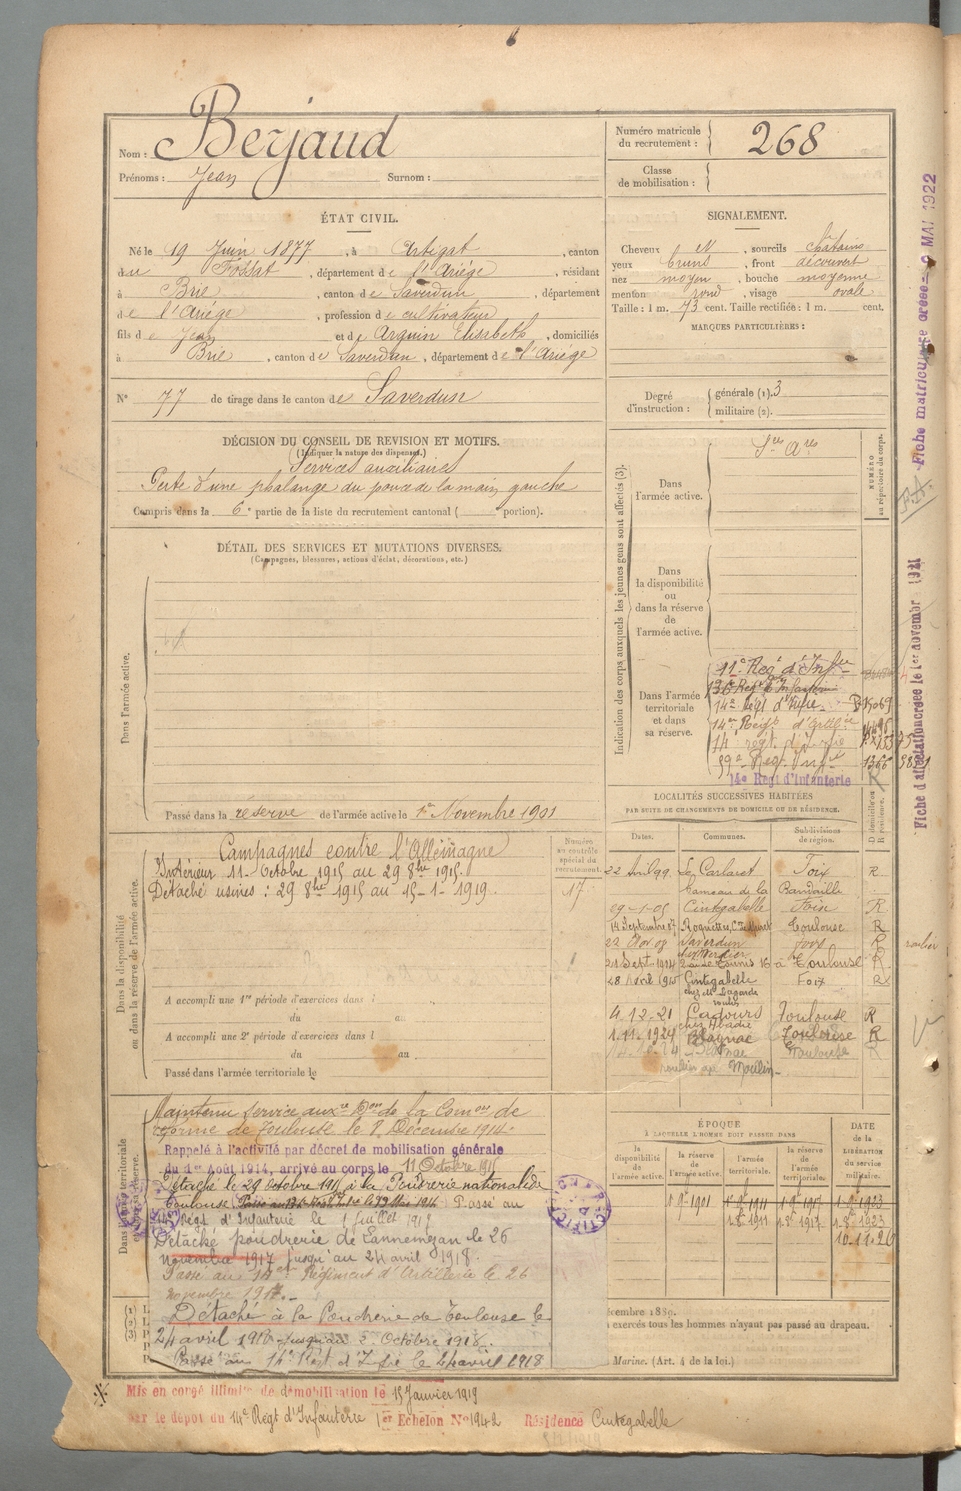 Nom : Berjaud
Prénoms : Jean Surnom :
Numéro matricule du recrutement : 268
Classe de mobilisation :
ÉTAT CIVIL.
Né le 19 Juin 1877, à Artigat, canton
du Fossat, département de l'Ariége, résidant
à Brie, canton de Saverdun, département
de l'Ariége, profession de cultivateur
fils de Jean et de Arguin Elisabeth, domiciliés
à Brie, canton de Saverdun, département de l'Ariége
N° 77 de tirage dans le canton de Saverdun
SIGNALEMENT.
Cheveux et, sourcils châtains
yeux bruns, front découvert
nez moyen, bouche moyenne
menton rond, visage ovale
Taille : 1 m. 73 cent. Taille rectifiée : 1 m. cent.
MARQUES PARTICULIÈRES :
Degré d'instruction : générale (1). 3
militaire (2).
DÉCISION DU CONSEIL DE REVISION ET MOTIFS.
(Indiquer la nature des dispenses.)
Services auxiliaires
Perte d'une phalange du pouce de la main gauche
Compris dans la 6e partie de la liste du recrutement cantonal ( portion).
DÉTAIL DES SERVICES ET MUTATIONS DIVERSES.
(Campagnes, blessures, actions d'éclat, décorations, etc.)
Dans l'armée active.
Passé dans la réserve de l'armée active le 1er Novembre 1901
Indication des corps auxquels les jeunes gens sont affectés (3).
NUMÉRO au répertoire du corps.
Dans l'armée active.
Sces Ares
Dans la disponibilité ou dans la réserve de l'armée active.
Dans l'armée territoriale et dans sa réserve.
11e Reg't d'Infie
136 Regt d'Infanterie
14e Regt d'Infie
14e Regt d'Artillie
14 regt d'Infie
59e Reg. Infie
14e Régt d'Infanterie
LOCALITÉS SUCCESSIVES HABITÉES
PAR SUITE DE CHANGEMENTS DE DOMICILE OU DE RÉSIDENCE.
Dates. Communes. Subdivisions de région. D domicile ou R résidence.
22 Avril 99 Le Carlaret Foix R
hameau de la Bandaille
09-1-05 Cintegabelle Foix R
14 Septembre 07 Toulouse R
22 Nov 09 Saverdun Foix R
21 Sept 1914 16 à Toulouse R
28 Avril 1915 Cintegabelle Foix R
chez Mr Lagarde
4.12-21 Toulouse R
chez Abadie
1.11.1924 Blagnac Toulouse R
Toulouse R
Moulin
Dans la disponibilité ou dans la réserve de l'armée active.
Numéro au contrôle spécial du recrutement.
17
Campagnes contre l'Allemagne
Intérieur 11-Octobre 1915 au 29 8bre 1915.
Détaché usines : 29 8bre 1915 au 15-1-1919.
A accompli une 1re période d'exercices dans l
du au
A accompli une 2e période d'exercices dans l
du au
Passé dans l'armée territoriale le
Maintenu service auxre Don de la Comon de
réforme de Toulouse le 8 Décembre 1914.
Rappelé à l'activité par décret de mobilisation générale
du 1er Août 1914, arrivé au corps le 11 Octobre 1915
Détaché le 29 Octobre 1915 à la Poudrerie nationale de
Toulouse Passé au
Régt d'Infanterie le 1 Juillet 191
Détaché poudrerie de Lannemezan le 26
novembre 1917 jusqu'au 24 avril 1918.
Passé au 14e Régiment d'Artillerie le 26
novembre 1917.
Détaché à la Poudrerie de Toulouse le
24 avril 1918 jusqu'au 5 Octobre 1918.
Passé au 14e Regt d'Infie le 24 avril 1918
ÉPOQUE
À LAQUELLE L'HOMME DOIT PASSER DANS
la disponibilité de l'armée active. la réserve de l'armée active. l'armée territoriale. la réserve de l'armée territoriale.
DATE de la LIBÉRATION du service militaire.
1 9bre 1901 1 9bre 1911 1 9bre 1917 1-9-1923
1.8bre 1911 1.8bre 1917 1.8-1923
10-11-26
décembre 1889.
exercés tous les hommes n'ayant pas passé au drapeau.
Marine. (Art. 4 de la loi.)
Mis en congé illimité de démobilisation le 15 Janvier 1919
par le dépôt du 14e Régt d'Infanterie 1er Echelon N° 1942 Résidence Cintegabelle
Fiche matriculaire créée MAI 1922
Fiche d'affectation créée le 1er novembre 1921